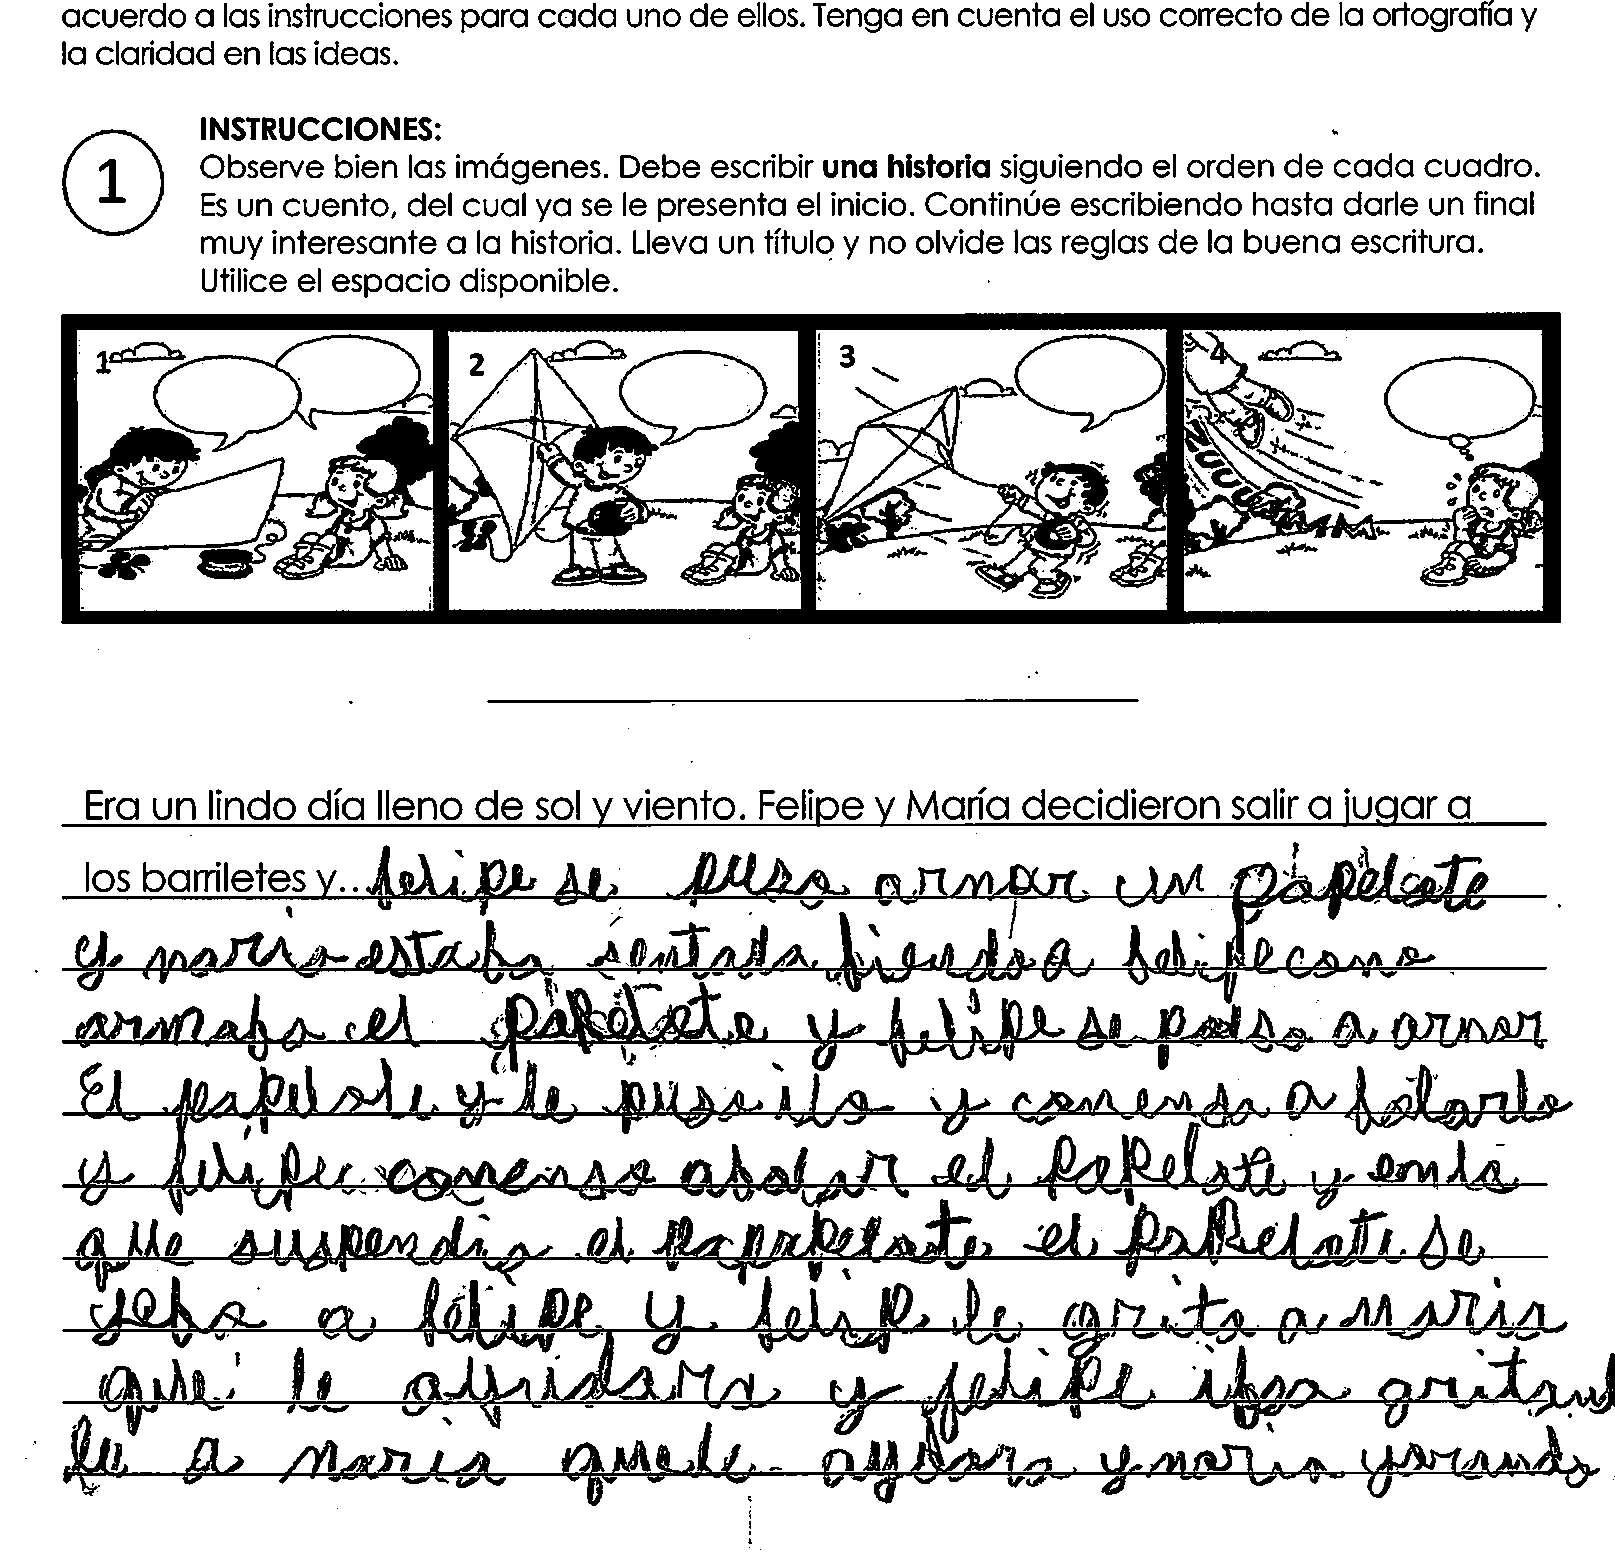 acuerdo a las instrucciones para cada uno de ellos. Tenga en cuenta el uso correcto de la ortografía y
la claridad en las ideas.
INSTRUCCIONES:
1
Observe bien las imágenes. Debe escribir una historia siguiendo el orden de cada cuadro.
Es un cuento, del cual ya se le presenta el inicio. Continúe escribiendo hasta darle un final
muy interesante a la historia. Lleva un título y no olvide las reglas de la buena escritura.
Utilice el espacio disponible.
1 2 3 4
ZUUUUMMM
Era un lindo día lleno de sol y viento. Felipe y María decidieron salir a jugar a
los barriletes y... felipe se puso armar un papelote
y maria estaba sentada biendo a felipe como
armaba el papelote y felipe se puso a armar
El papelote y le puso ilo y comenso a bolarlo
y felipe comenso abolar el papelote y en la
que suspendio el papapelote el papelote se
yeba a felipe y felipe le grito a maria
que le alludara y felipe iba gritand
le a maria que le aydara y maria yorando